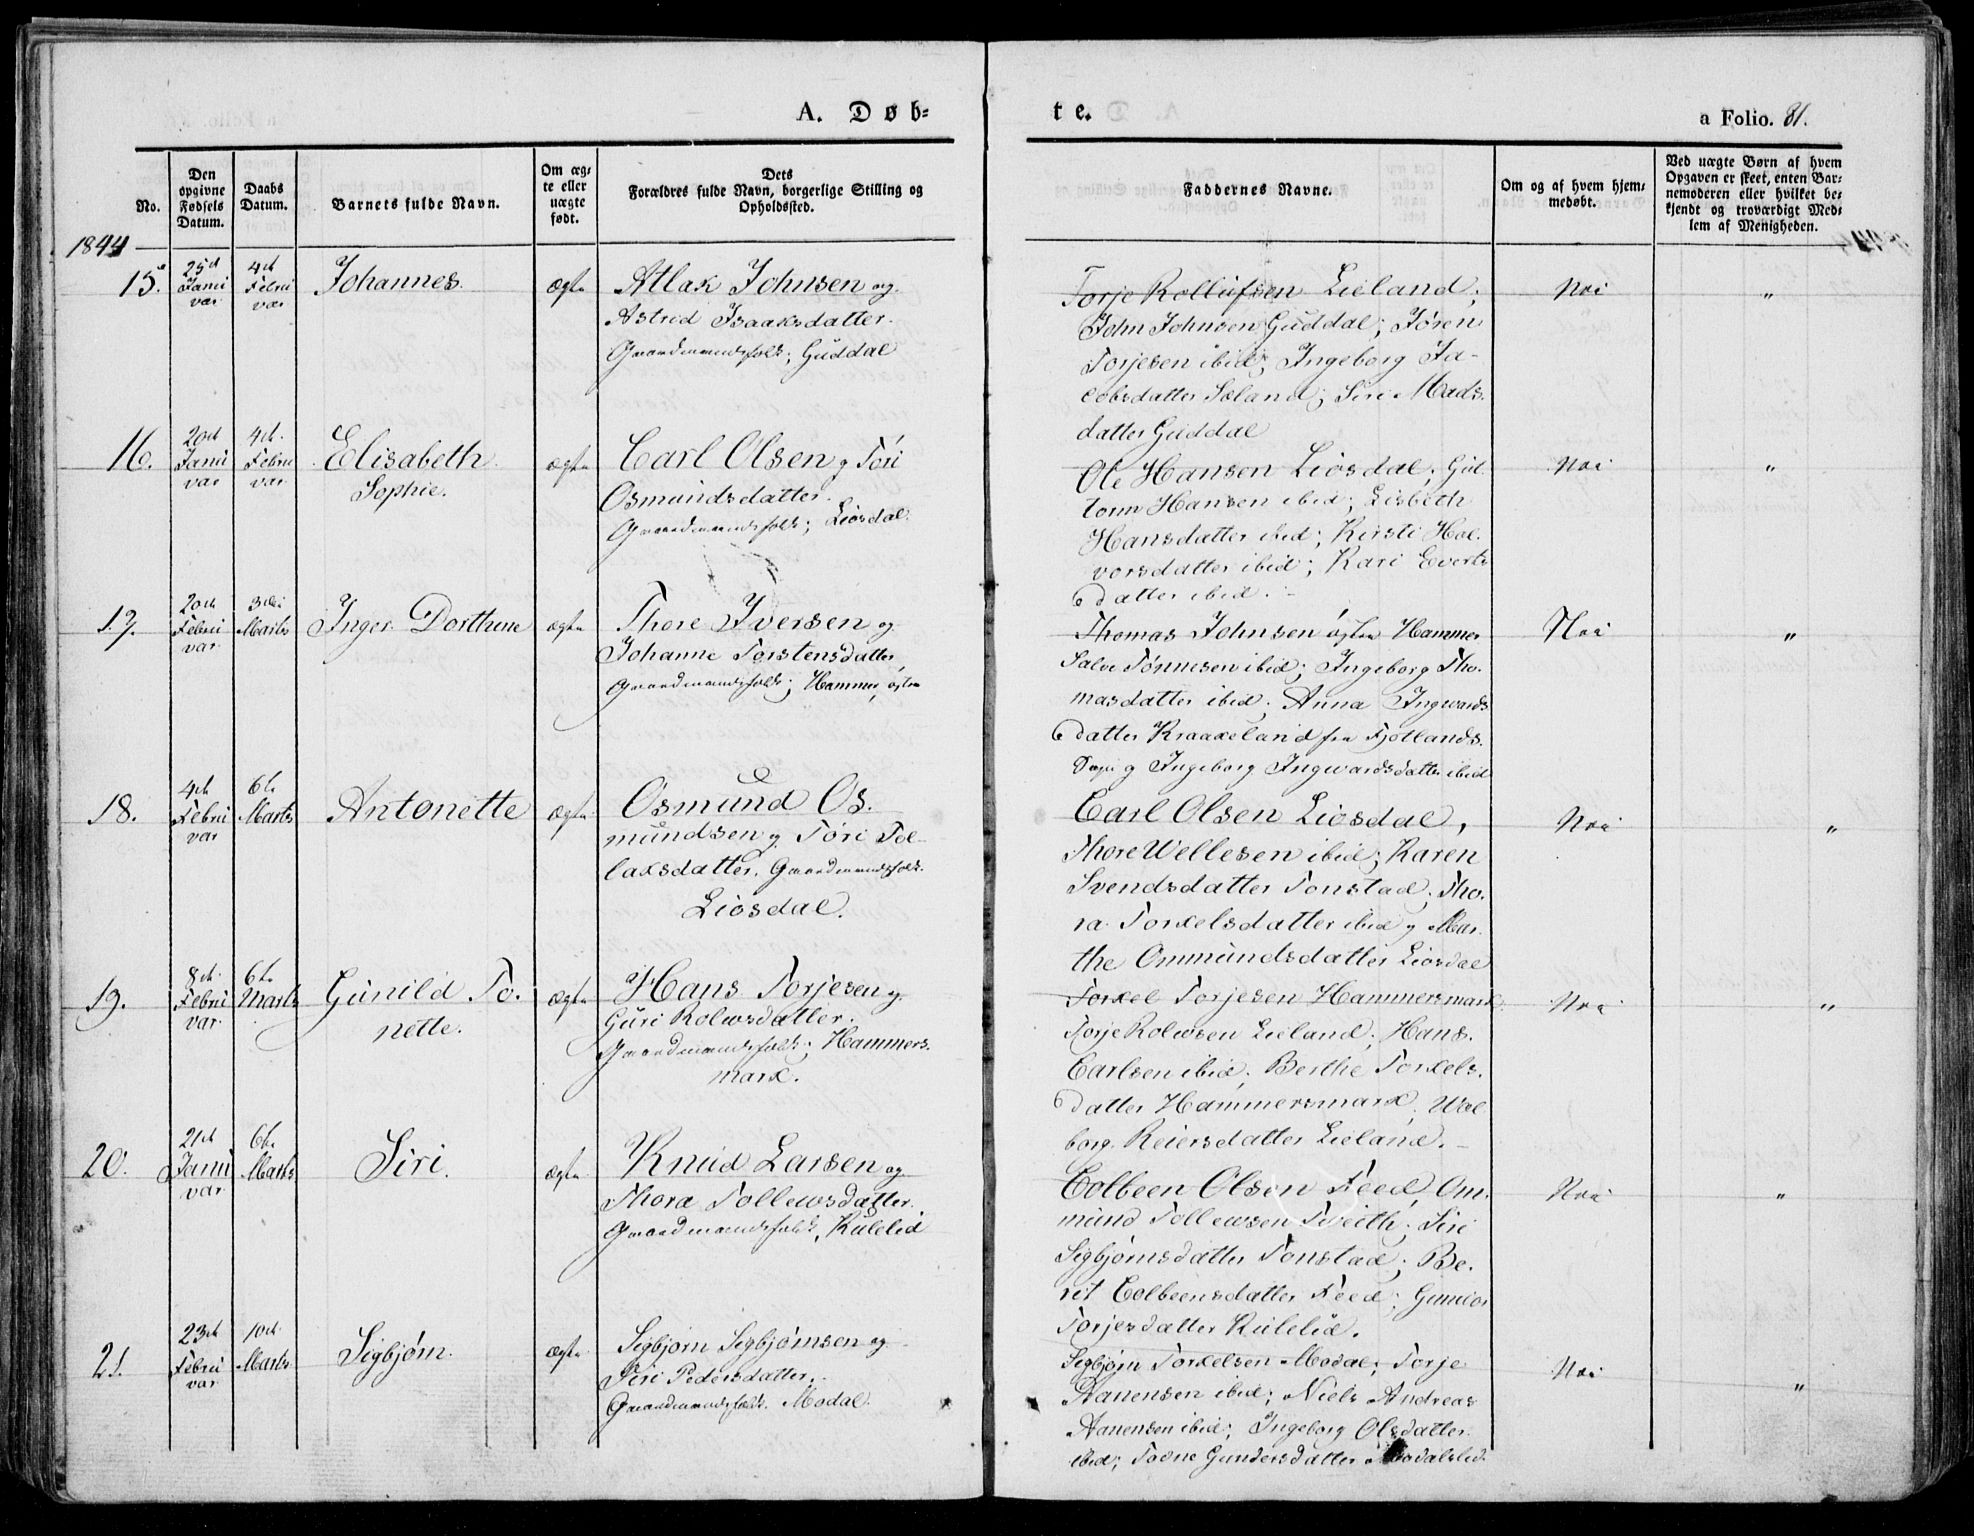 A. Døb=
te.
a Folio. 81.
No.
Den
opgivne
Fødsels
Datum.
Daabs
Datum.
Barnets fulde Navn.
Om æg=
te eller
uægte
født.
Dets
Forældres fulde Navn, borgerlige Stilling og
Opholdssted.
Faddernes Navne.
Om og af hvem hjem=
medøbt.
Ved uægte Børn af hvem
Opgaven er skeet, enten Bar=
nemoderen eller hvilket be=
kjendt og troværdigt Med=
lem af Menigheden.
1844
15.
25de
Janu
var
4de
Febru
var
Johannes.
ægte
Atlak Johnsen og
Astrid Isaaksdatter.
Gaardmandsfolk; Guddal
Torje Rollufsen Lieland;
John Johnsen Guddal; Jøren
Torjesen ibid; Ingeborg Ja-
cobsdatter Sæland; Siri Mads.
datter Guddal
Nei
"
16.
20de
Janu
var
4de
Febru
var
Elisabeth
Sophie.
ægte
Carl Olsen og Tøri
Osmundsdatter.
Gaardmandsfolk; Liosdal.
Ole Hansen Liosdal; Gut
torm Hansen ibid; Lisbeth
Hansdatter ibid; Kirsti Hal.
vorsdatter ibid; Kari Everts
datter ibid.
Nei
"
17.
20de
Febru
var
3die
Marts
Inger Dorthene
ægte
Thore Iversen og
Johanne Torstensdatter,
Gaardmandsfolk; Hammer, østre
Thomas Johnsen østre Hammer
Salve Tønnesen ibid; Ingeborg Tho.
masdatter ibid; Anna Ingwards
datter Kraakeland fra Fjotlands.
Sogn og Ingeborg Ingwardsdatter ibid
Nei
"
18.
4de
Febru
var
6te
Marts
Antonette
ægte
Osmund Os.
mundsen og Tøri Tol-
laksdatter. Gaardmandsfolk.
Liosdal.
Carl Olsen Liosdal,
Thore Wellesen ibid; Karen
Svendsdatter Tonstad; Tho.
ra Torkelsdatter ibid og Mar.
the Ommundsdatter Liosdal
Nei
"
19.
8de
Febru
var
6te
Marts
Gunild To.
nette.
ægte
Hans Torjesen og
Guri Rolwsdatter.
Gaardmandsfolk; Hammers.
mark.
Torkel Torjesen Hammersmark;
Torje Rolwsen Lieland; Hans.
Carlsen ibid; Berthe Torkels.
datter Hammersmark. Wal
borg Reiersdatter Lieland.
Nei
"
20.
21de
Janu
var
6te
Marts
Siri.
ægte
Knud Larsen og
Thora Tollewsdatter.
Gaardmandsfolk, Kulelid
Colbeen Olsen Feed, Om.
mund Tollewsen Tveith; Siri
Sigbjørnsdatter Tonstad; Be.
rit Colbeensdatter Feed; Gunvor
Torjesdatter Kulelid.
Nei
"
21.
23de
Febru
var
10de
Marts
Sigbjørn.
ægte
Sigbjørn Sigbjørnsen og
Siri Pedersdatter.
Gaardmandsfolk. Modal.
Sigbjørn Torkelsen Modal; Torje
Aanensen ibid; Niels Andreas
Aanensen ibid; Ingeborg Olsdatter
ibid; Todne Gundersdatter Modalslid.
Nei
"